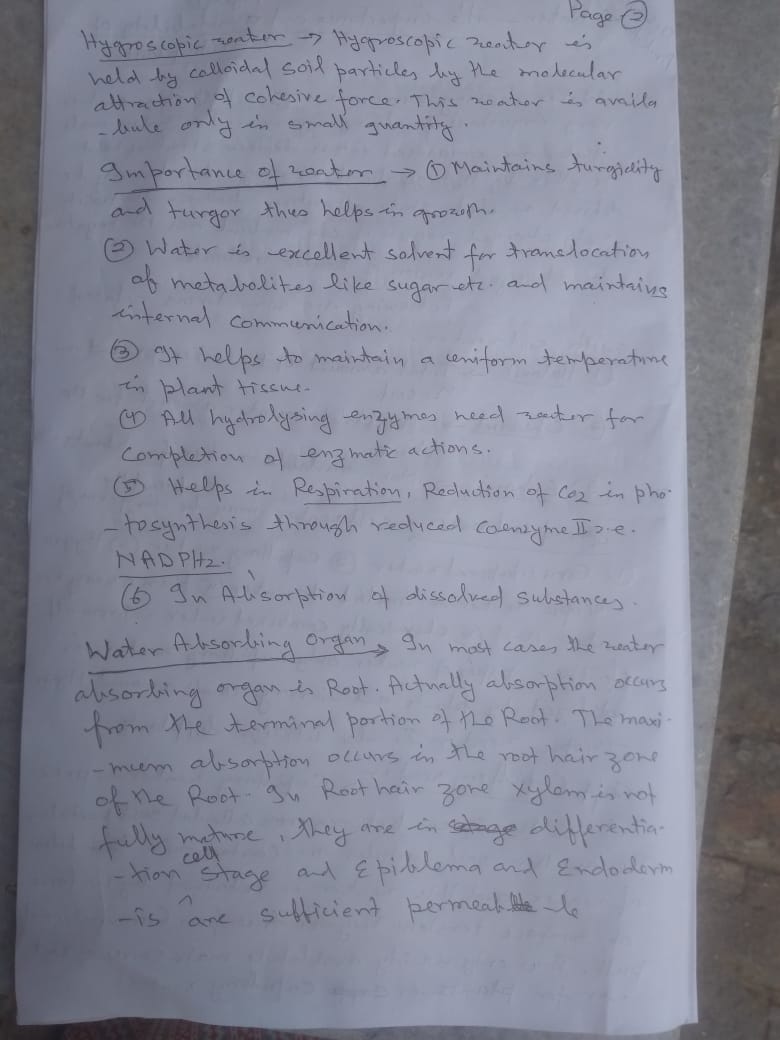 Page ②
Hygroscopic water → Hygroscopic water is
held by colloidal soil particles by the molecular
attraction of cohesive force. This water is availa
-bule only in small quantity.
Importance of water → ① Maintains turgidity
and turgor thus helps in growth.
② Water is excellent solvent for translocation
of metabolites like sugar etc. and maintains
internal communication.
③ It helps to maintain a uniform temperature
in plant tissue.
④ All hydrolysing enzymes need water for
completion of enzmatic actions.
⑤ Helps in Respiration, Reduction of CO2 in pho-
-tosynthesis through reduced Coenzyme II i.e.
NADPH2.
⑥ In Absorption of dissolved substances.
Water Absorbing Organ → In most cases the water
absorbing organ is Root. Actually absorption occurs
from the terminal portion of the Root. The maxi-
-mum absorption occurs in the root hair zone
of the Root. In Root hair zone xylem is not
fully mature, they are in stage differentia-
-tion cell stage and Epiblema and Endoderm
-is are sufficient permeab le